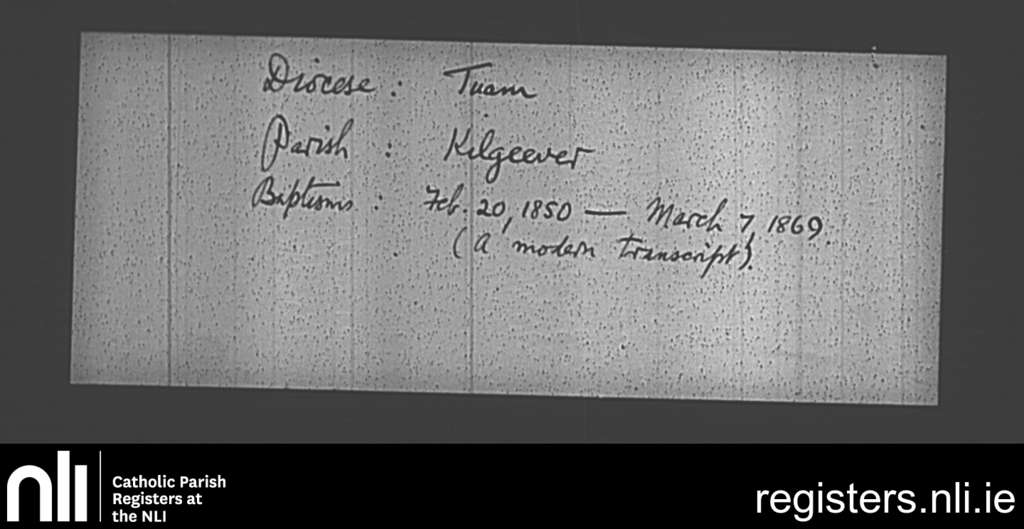 Diocese : Tuam
Parish : Kilgeever
Baptisms : Feb. 20, 1850 — March 7, 1869.
(A modern transcript).
nli
Catholic Parish
Registers at
the NLI
registers.nli.ie